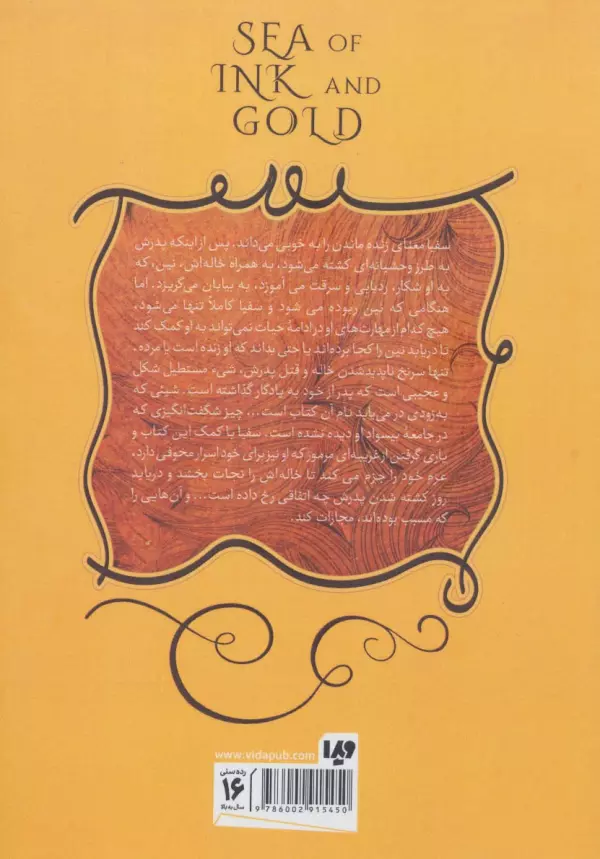 SEA OF
INK AND
GOLD
سفیا معنای زنده ماندن را به خوبی می‌داند. پس از اینکه پدرش
به طرز وحشیانه‌ای کشته می‌شود، به همراه خاله‌اش، نین، که
به او شکار، ردیابی و سرقت می آموزد، به بیابان می‌گریزد. اما
هنگامی که نین ربوده می شود و سفیا کاملاً تنها می‌شود،
هیچ کدام از مهارت‌های او در ادامهٔ حیات نمی‌تواند به او کمک کند
تا دریابد نین را کجا برده‌اند یا حتی بداند که او زنده است یا مرده.
تنها سرنخ ناپدید شدن خاله و قتل پدرش، شیء مستطیل شکل
و عجیبی است که پدر از خود به یادگار گذاشته است. شیئی که
به‌زودی در می‌یابد نام آن کتاب است... چیز شگفت‌انگیزی که
در جامعه بیسواد او دیده نشده است. سفیا با کمک این کتاب و
یاری گرفتن از غریبه‌ای مرموز که او نیز برای خود اسرار مخوفی دارد،
عزم خود را جزم می کند تا خاله‌اش را نجات بخشد و دریابد
روز کشته شدن پدرش چه اتفاقی رخ داده است... و آن‌هایی را
که مسبب بوده‌اند، مجازات کند.
ویدا
www.vidapub.com
رده‌سنی
۱۶
سال به بالا
9 786002 915450